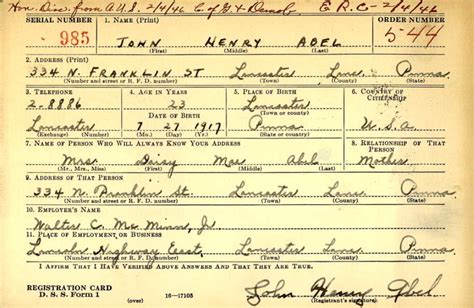 Hon. Dis. from A.U.S. 2/4/46 C of G+ Demob. E R C - 2/4/46
SERIAL NUMBER 1. NAME (Print) ORDER NUMBER
985 JOHN HENRY ABEL 544
(First) (Middle) (Last)
2. ADDRESS (Print)
334 N. FRANKLIN ST Lancaster Lanc. Penna
(Number and street or R. F. D. number) (Town) (County) (State)
3. TELEPHONE 4. AGE IN YEARS 5. PLACE OF BIRTH 6. COUNTRY OF CITIZENSHIP
2-8886 23 Lancaster
DATE OF BIRTH (Town or county)
Lancaster 7 27 1917 Penna U.S.A.
(Exchange) (Mo.) (Day) (Yr.) (State or country)
7. NAME OF PERSON WHO WILL ALWAYS KNOW YOUR ADDRESS 8. RELATIONSHIP OF THAT PERSON
Mrs. Daisy Mae Abel Mother
(Mr., Mrs., Miss) (First) (Middle) (Last)
9. ADDRESS OF THAT PERSON
334 N. Franklin St. Lancaster Lanc. Penna
(Number and street or R. F. D. number) (Town) (County) (State)
10. EMPLOYER'S NAME
Walter C. Mc Minn, Jr
11. PLACE OF EMPLOYMENT OR BUSINESS
Lincoln Highway East, Lancaster Lanc Penna
(Number and street or R. F. D. number) (Town) (County) (State)
I AFFIRM THAT I HAVE VERIFIED ABOVE ANSWERS AND THAT THEY ARE TRUE.
REGISTRATION CARD
D. S. S. Form 1 16-17105 John Henry Abel
(Registrant's signature)